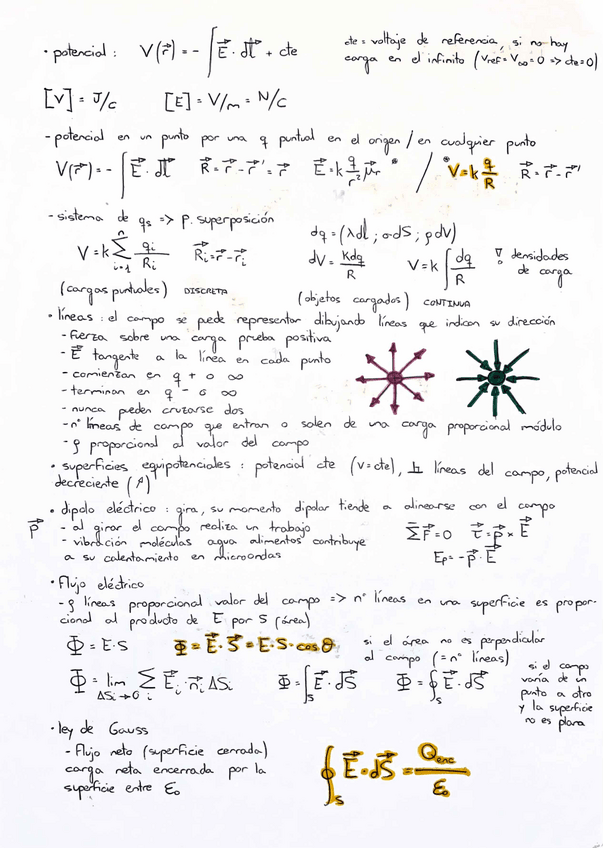 · potencial : V(r⃗) = - ∫ E⃗ · dl⃗ + cte
cte = voltaje de referencia, si no hay
carga en el infinito (Vref = V∞ = 0 => cte = 0)
[V] = J/C [E] = V/m = N/C
- potencial en un punto por una q puntual en el origen / en cualquier punto
V(r⃗) = - ∫ E⃗ · dl⃗ R⃗ = r⃗ - r⃗' = r⃗ E⃗ = k q/r² μ⃗r * / * V = k q/R R⃗ = r⃗ - r⃗'
- sistema de qs => p. superposición
V = k Σ(i=1, n) qi/Ri R⃗i = r⃗ - r⃗i
(cargas puntuales) DISCRETA
dq = (λdl ; σdS ; ρdV)
dV = Kdq/R V = k ∫ dq/R ! densidades de carga
(objetos cargados) CONTINUA
· líneas : el campo se pede representar dibujando líneas que indican su dirección
- fuerza sobre una carga prueba positiva
- E⃗ tangente a la línea en cada punto
- comienzan en q + o ∞
- terminan en q - o ∞
- nunca pueden cruzarse dos
- nº líneas de campo que entran o salen de una carga proporcional módulo
- ρ proporcional al valor del campo
· superficies equipotenciales : potencial cte (V=cte), ⊥ líneas del campo, potencial
decreciente
· dipolo eléctrico : gira, su momento dipolar tiende a alinearse con el campo
p⃗ - al girar el campo realiza un trabajo
- vibración moléculas agua alimentos contribuye
a su calentamiento en microondas
ΣF⃗ = 0 τ⃗ = p⃗ × E⃗
Ep = - p⃗ · E⃗
· flujo eléctrico
- ρ líneas proporcional valor del campo => nº líneas en una superficie es propor-
cional al producto de E por S (área)
Φ = E·S Φ = E⃗ · S⃗ = E·S·cos θ
si el área no es perpendicular
al campo (= nº líneas)
Φ = lim ΔSi→0 Σ E⃗i · n⃗i ΔSi Φ = ∫S E⃗ · dS⃗ Φ = ∮S E⃗ · dS⃗
si el campo
varía de un
punto a otro
y la superficie
no es plana
· ley de Gauss
- Flujo neto (superficie cerrada)
carga neta encerrada por la
superficie entre ε₀
∮S E⃗ · dS⃗ = Qenc/ε₀